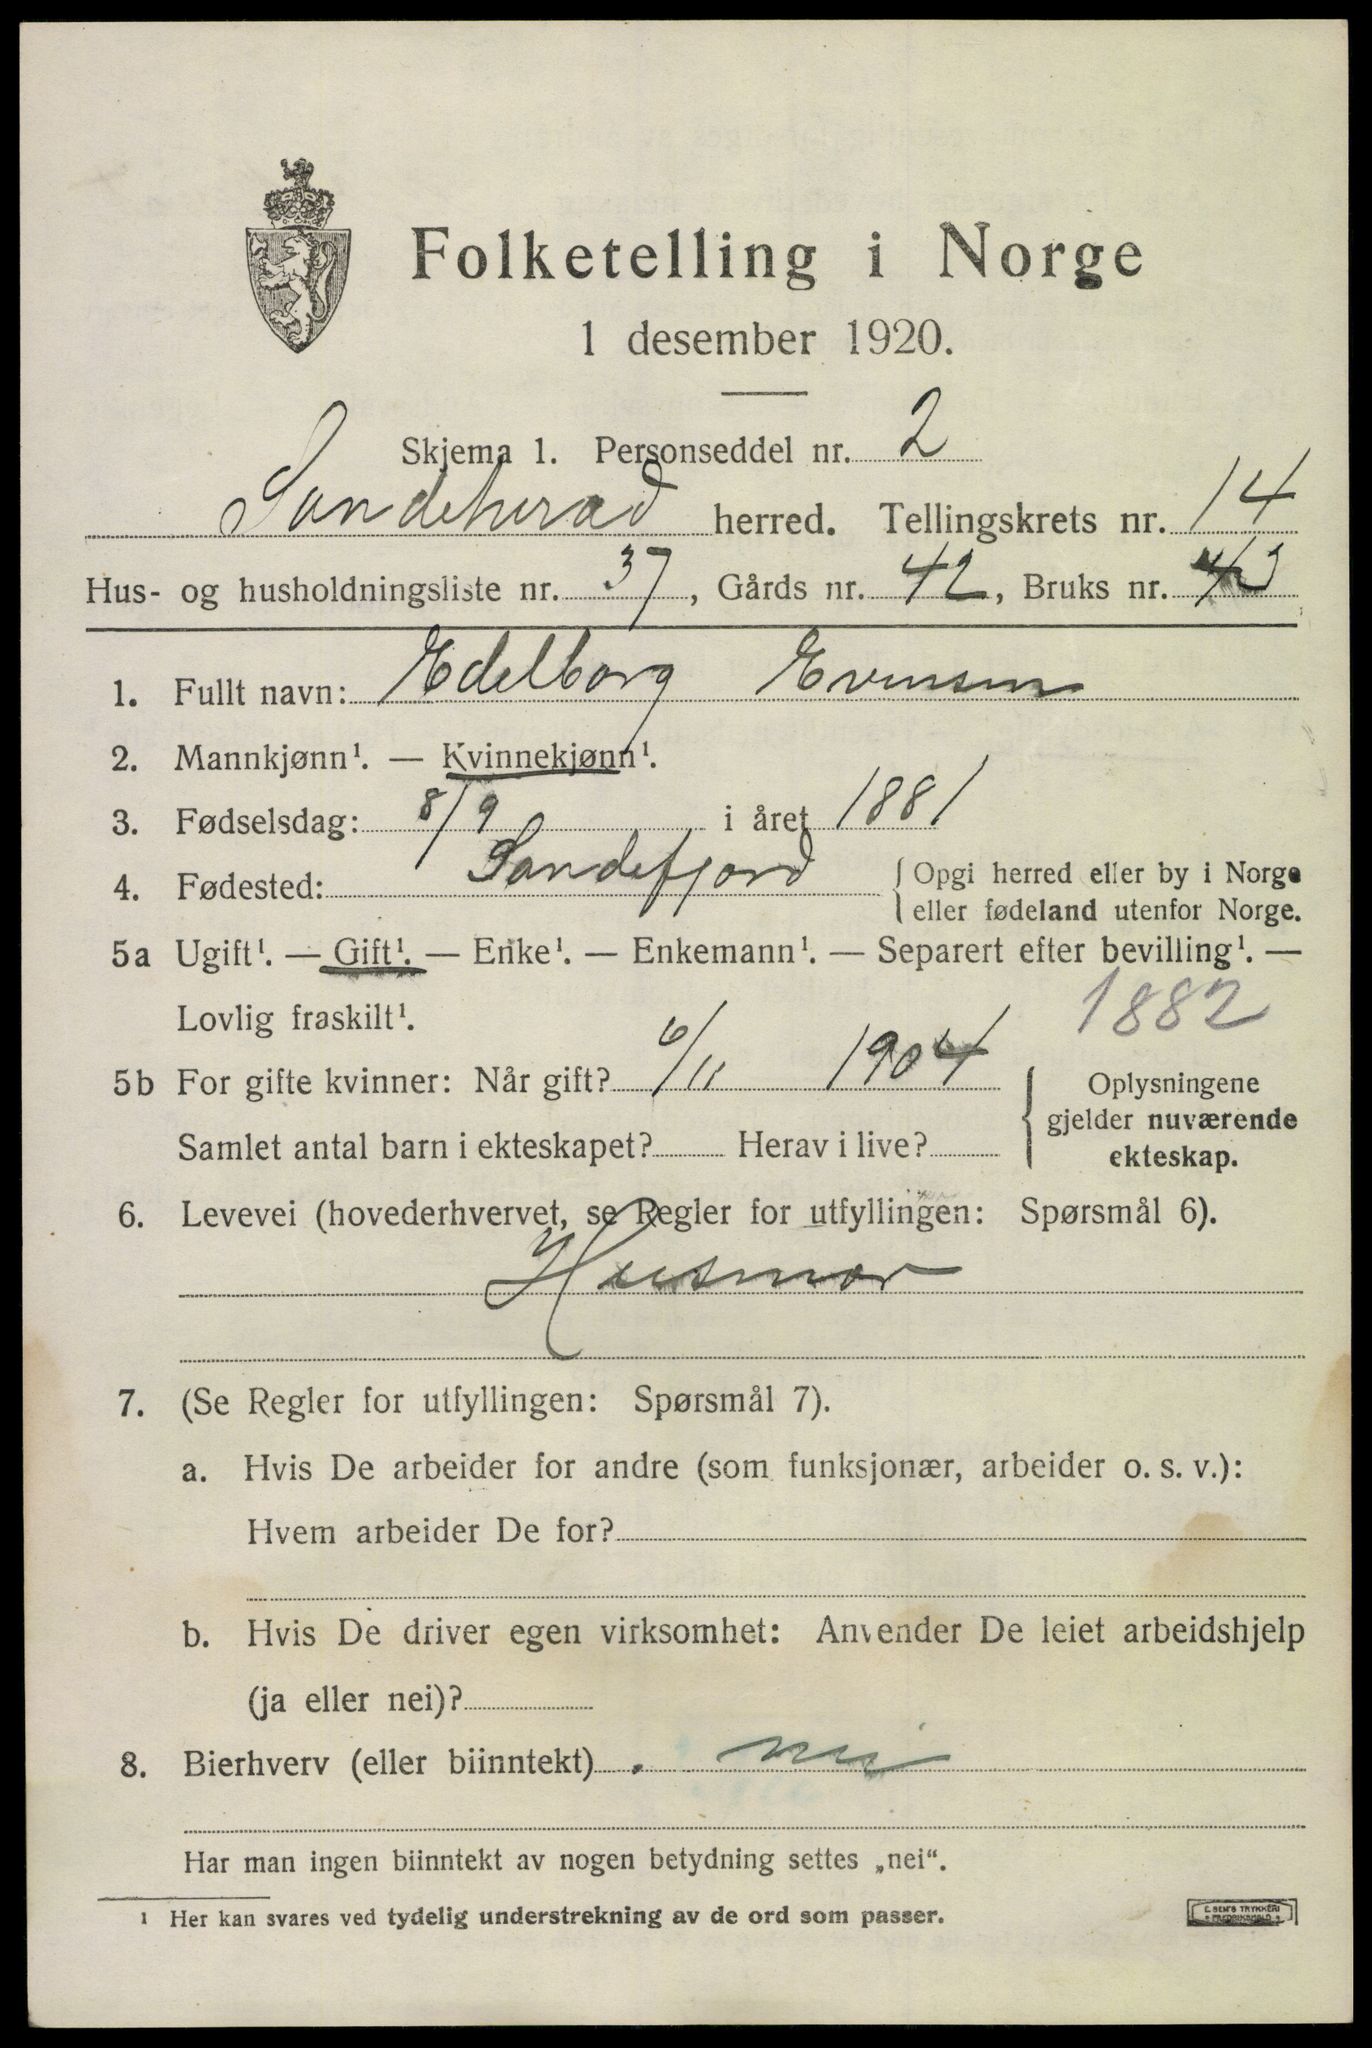 Folketelling i Norge
1 desember 1920.
Skjema 1. Personseddel nr. 2
Sandeherad herred. Tellingskrets nr. 14
Hus- og husholdningsliste nr. 37, Gårds nr. 42, Bruks nr. 43
1. Fullt navn: Edelborg Evensen
2. Mannkjønn¹. — Kvinnekjønn¹.
3. Fødselsdag: 8/9 i året 1881
4. Fødested: Sandefjord { Opgi herred eller by i Norge
eller fødeland utenfor Norge.
5a Ugift¹. — Gift¹. — Enke¹. — Enkemann¹. — Separert efter bevilling¹. —
Lovlig fraskilt¹. 1882
5b For gifte kvinner: Når gift? 6/11 1904 { Oplysningene
gjelder nuværende
Samlet antal barn i ekteskapet? Herav i live? ekteskap.
6. Levevei (hovederhvervet, se Regler for utfyllingen: Spørsmål 6).
Husmor
7. (Se Regler for utfyllingen: Spørsmål 7).
a. Hvis De arbeider for andre (som funksjonær, arbeider o. s. v.):
Hvem arbeider De for?
b. Hvis De driver egen virksomhet: Anvender De leiet arbeidshjelp
(ja eller nei)?
8. Bierhverv (eller biinntekt) nei
Har man ingen biinntekt av nogen betydning settes „nei“.
¹ Her kan svares ved tydelig understrekning av de ord som passer.
E. SEM'S TRYKKERI
* FREDRIKSHALD *